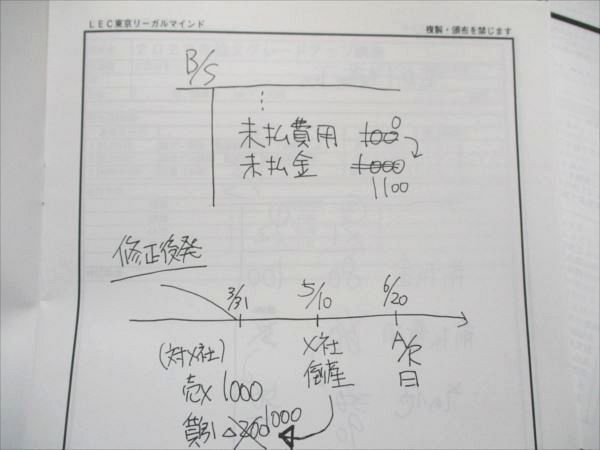 LEC東京リーガルマインド
複製・頒布を禁じます
B/S
未払費用 100 0
未払金 1000
1100
修正後発
3/31 5/10 6/20
(対X社) X社 A/R
売× 1000 倒産 日
貸引 △200 1000